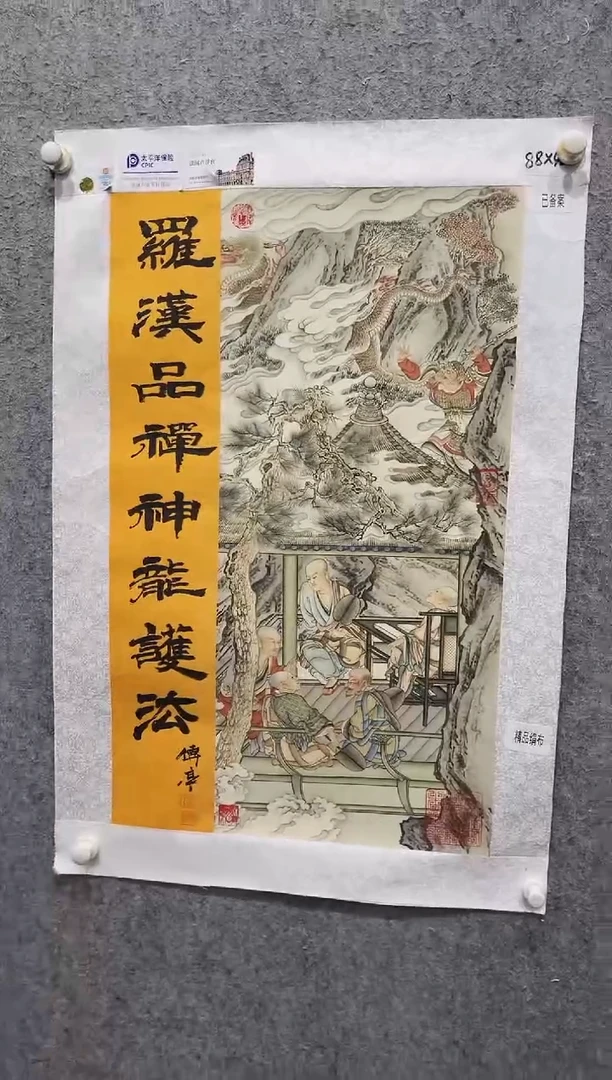 太平洋保险
CPIC
88X4
已备案
羅漢品禪神龍護法
傅亭
精品绢布